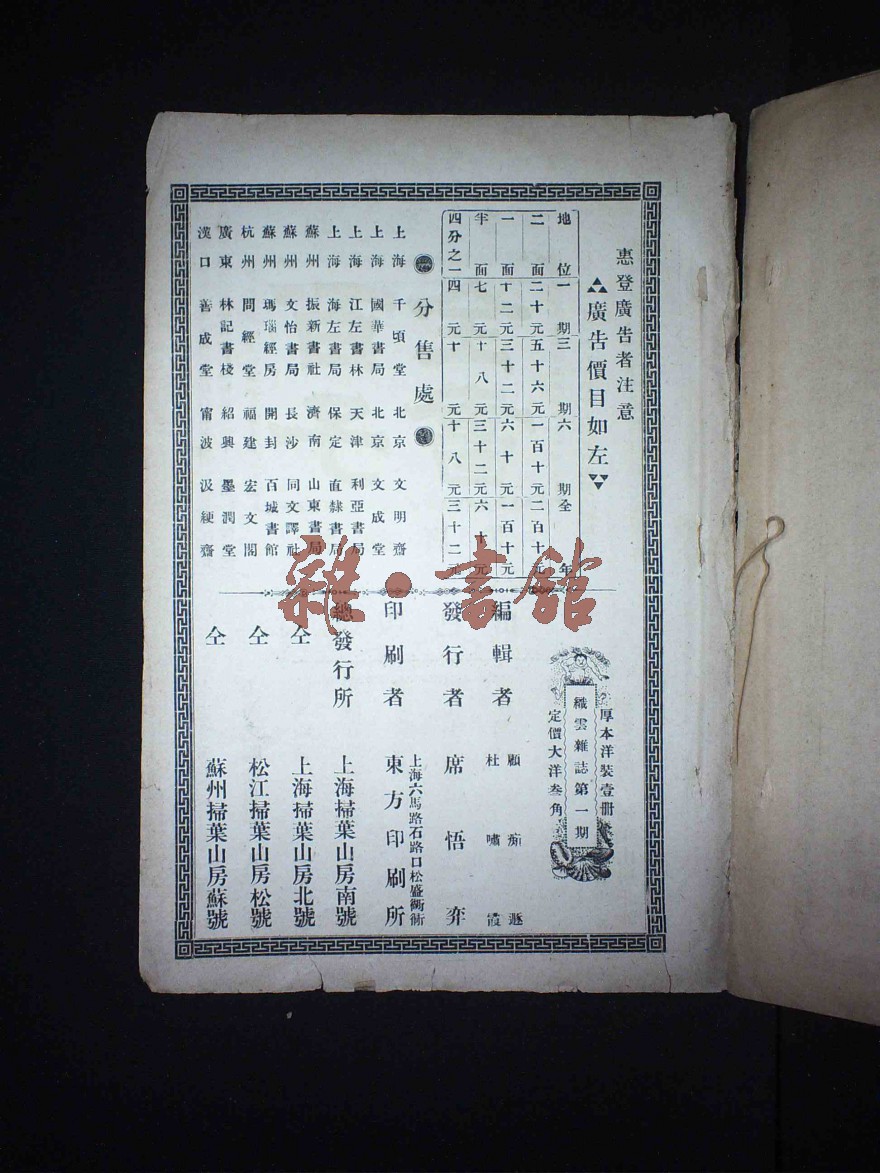 惠登廣告者注意
廣告價目如左
地位 一期 三期 六期 全年
二面 二十元 五十六元 一百十元 二百十元
一面 十二元 三十二元 六十元 一百十元
半面 七元 十八元 三十二元 六十元
四分之一 四元 十元 十八元 三十二元
分售處
上海 千頃堂 北京 文明齋
上海 國華書局 北京 文成堂
上海 江左書林 天津 利亞書局
上海 海左書局 保定 直隸書局
蘇州 振新書社 濟南 山東書局
蘇州 文怡書局 長沙 同文譯社
蘇州 瑪瑙經房 開封 百城書館
杭州 問經堂 福建 宏文閣
廣東 林記書棧 紹興 墨潤堂
漢口 善成堂 甯波 汲綆齋
厚本洋裝壹冊
織雲雜誌第一期
定價大洋叁角
編輯者 顧痴遯
杜嘯霞
發行者 席悟弈
上海六馬路石路口松盛衚衕
印刷者 東方印刷所
總發行所 上海掃葉山房南號
仝 上海掃葉山房北號
仝 松江掃葉山房松號
仝 蘇州掃葉山房蘇號
雜·書館